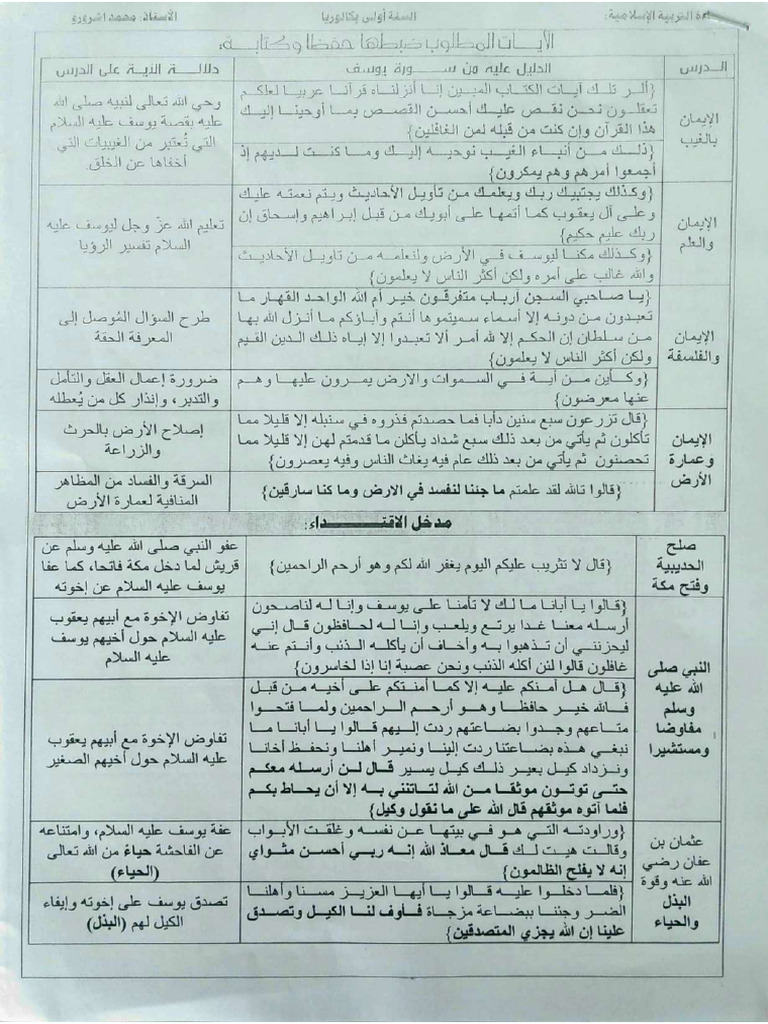 مادة التربية الإسلامية:
السنة أولى بكالوريا
الأستاذ: محمد اشرورو
الآيات المطلوب ضبطها حفظا وكتابة:
الدرس
الدليل عليه من سورة يوسف
دلالة النية على الدرس
الإيمان
بالغيب
{ألر تلك آيات الكتاب المبين إنا أنزلناه قرآنا عربيا لعلكم
تعقلون نحن نقص عليك أحسن القصص بما أوحينا إليك
هذا القرآن وإن كنت من قبله لمن الغافلين}
{ذلك من أنباء الغيب نوحيه إليك وما كنت لديهم إذ
أجمعوا أمرهم وهم يمكرون}
وحي الله تعالى لنبيه صلى الله
عليه بقصة يوسف عليه السلام
التي تُعتبر من الغيبيات التي
أخفاها عن الخلق.
الإيمان
والعلم
{وكذلك يجتبيك ربك ويعلمك من تأويل الأحاديث ويتم نعمته عليك
وعلى آل يعقوب كما أتمها على أبويك من قبل إبراهيم وإسحاق إن
ربك عليم حكيم}
{وكذلك مكنا ليوسف في الأرض ولنعلمه من تاويل الأحاديث
والله غالب على أمره ولكن أكثر الناس لا يعلمون}
تعليم الله عزّ وجل ليوسف عليه
السلام تفسير الرؤيا
الإيمان
والفلسفة
{يا صاحبي السجن أرباب متفرقون خير أم الله الواحد القهار ما
تعبدون من دونه إلا أسماء سميتموها أنتم وأباؤكم ما أنزل الله بها
من سلطان إن الحكم إلا لله أمر ألا تعبدوا إلا إياه ذلك الدين القيم
ولكن أكثر الناس لا يعلمون}
طرح السؤال المُوصل إلى
المعرفة الحقة
{وكأين من آية في السموات والارض يمرون عليها وهم
عنها معرضون}
ضرورة إعمال العقل والتأمل
والتدبر، وإنذار كل من يُعطله
الإيمان
وعمارة
الأرض
{قال تزرعون سبع سنين دأبا فما حصدتم فذروه في سنبله إلا قليلا مما
تأكلون ثم يأتي من بعد ذلك سبع شداد يأكلن ما قدمتم لهن إلا قليلا مما
تحصنون ثم يأتي من بعد ذلك عام فيه يغاث الناس وفيه يعصرون}
إصلاح الأرض بالحرث
والزراعة
{قالوا تالله لقد علمتم ما جئنا لنفسد في الارض وما كنا سارقين}
السرقة والفساد من المظاهر
المنافية لعمارة الأرض
مدخل الاقتداء:
صلح
الحديبية
وفتح مكة
{قال لا تثريب عليكم اليوم يغفر الله لكم وهو أرحم الراحمين}
عفو النبي صلى الله عليه وسلم عن
قريش لما دخل مكة فاتحا، كما عفا
يوسف عليه السلام عن إخوته
النبي صلى
الله عليه
وسلم
مفاوضا
ومستشيرا
{قالوا يا أبانا ما لك لا تأمنا على يوسف وإنا له لناصحون
أرسله معنا غدا يرتع ويلعب وإنا له لحافظون قال إني
ليحزنني أن تذهبوا به وأخاف أن يأكله الذئب وأنتم عنه
غافلون قالوا لئن أكله الذئب ونحن عصبة إنا إذا لخاسرون}
تفاوض الإخوة مع أبيهم يعقوب
عليه السلام حول أخيهم يوسف
عليه السلام
{قال هل آمنكم عليه إلا كما أمنتكم على أخيه من قبل
فالله خير حافظا وهو أرحم الراحمين ولما فتحوا
متاعهم وجدوا بضاعتهم ردت إليهم قالوا يا أبانا ما
نبغي هذه بضاعتنا ردت إلينا ونمير أهلنا ونحفظ أخانا
ونزداد كيل بعير ذلك كيل يسير قال لن أرسله معكم
حتى توتون موثقا من الله لتاتنني به إلا أن يحاط بكم
فلما آتوه موثقهم قال الله على ما نقول وكيل}
تفاوض الإخوة مع أبيهم يعقوب
عليه السلام حول أخيهم الصغير
عثمان بن
عفان رضي
الله عنه وقوة
البذل
والحياء
{وراودته التي هو في بيتها عن نفسه وغلقت الأبواب
وقالت هيت لك قال معاذ الله إنه ربي أحسن مثواي
إنه لا يفلح الظالمون}
عفة يوسف عليه السلام، وامتناعه
عن الفاحشة حياءً من الله تعالى
(الحياء)
{فلما دخلوا عليه قالوا يا أيها العزيز مسنا وأهلنا
الضر وجئنا ببضاعة مزجاة فأوف لنا الكيل وتصدق
علينا إن الله يجزي المتصدقين}
تصدق يوسف على إخوته وإيفاء
الكيل لهم (البذل)